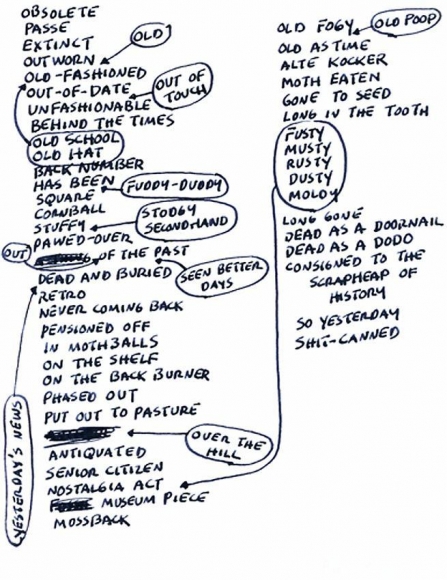 OBSOLETE
PASSE
EXTINCT
OUTWORN
OLD
OLD-FASHIONED
OUT-OF-DATE
OUT OF
TOUCH
UNFASHIONABLE
BEHIND THE TIMES
OLD SCHOOL
OLD HAT
BACK NUMBER
HAS BEEN
SQUARE
FUDDY-DUDDY
CORNBALL
STUFFY
STODGY
SECONDHAND
PAWED-OVER
OUT OF THE PAST
DEAD AND BURIED
SEEN BETTER
DAYS
RETRO
NEVER COMING BACK
PENSIONED OFF
IN MOTHBALLS
ON THE SHELF
ON THE BACK BURNER
PHASED OUT
PUT OUT TO PASTURE
OVER THE
HILL
ANTIQUATED
SENIOR CITIZEN
NOSTALGIA ACT
MUSEUM PIECE
MOSSBACK
YESTERDAY'S NEWS
OLD FOGY
OLD POOP
OLD AS TIME
ALTE KOCKER
MOTH EATEN
GONE TO SEED
LONG IN THE TOOTH
FUSTY
MUSTY
RUSTY
DUSTY
MOLDY
LONG GONE
DEAD AS A DOORNAIL
DEAD AS A DODO
CONSIGNED TO THE
SCRAPHEAP OF
HISTORY
SO YESTERDAY
SHIT-CANNED